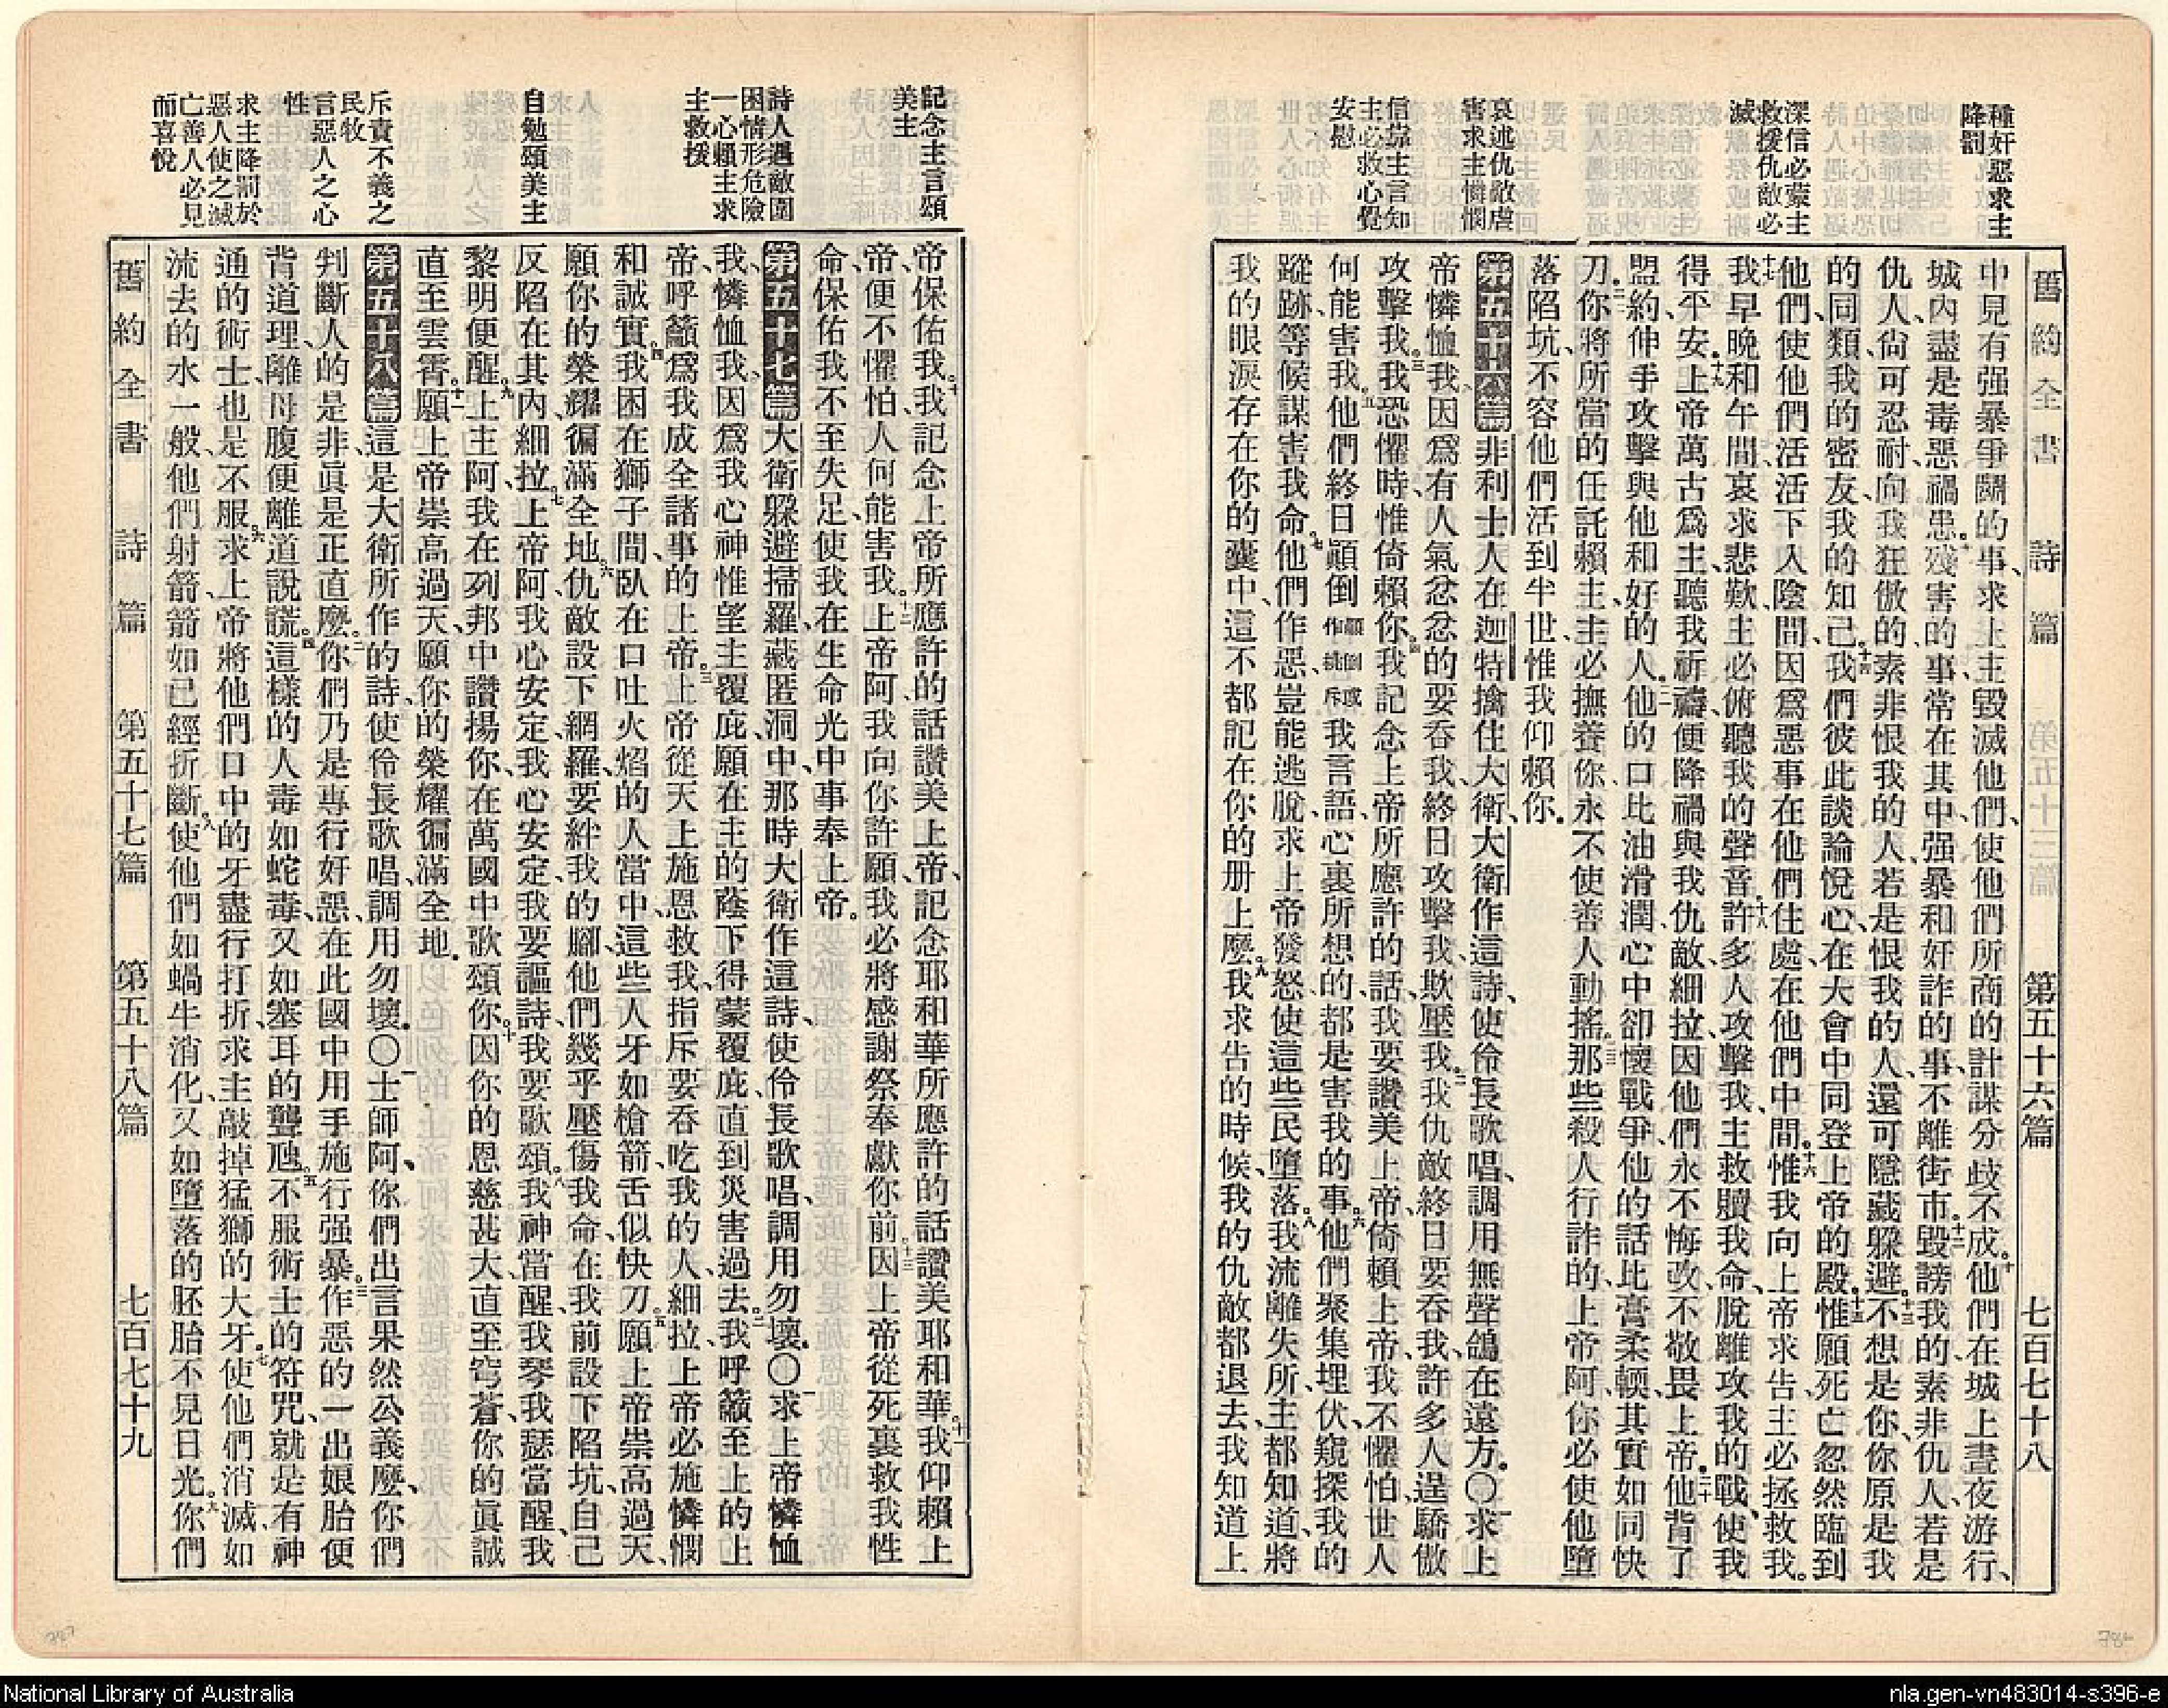 種奸惡求主
降罰
深信必蒙主
救援仇敵必
滅
哀述仇敵虐
害求主憐憫
信靠主言知
主必救心覺
安慰
舊約全書 詩篇 第五十六篇 七百七十八
中見有强暴爭鬭的事、求主毀滅他們、使他們所商的計謀分歧不成。十他們在城上晝夜游行、
城內盡是毒惡禍患。十一殘害的事、常在其中、强暴和奸詐的事、不離街市。十二毀謗我的、素非仇人、若是
仇人、尙可忍耐、向我狂傲的、素非恨我的人、若是恨我的人、還可隱藏躱避。十三不想是你、你原是我
的同類、我的密友、我的知己。十四我們彼此談論悅心、在大會中同登上帝的殿。十五惟願死亡忽然臨到
他們、使他們活活下入陰間、因爲惡事在他們住處、在他們中間。十六惟我向上帝求告、主必拯救我。
十七我早晚和午間、哀求悲歎、主必俯聽我的聲音。十八許多人攻擊我、主救贖我命、脫離攻我的戰、使我
得平安。十九上帝萬古爲主、聽我祈禱、便降禍與我仇敵、細拉、因他們永不悔改、不敬畏上帝。二十他背了
盟約、伸手攻擊與他和好的人。二一他的口比油滑潤、心中卻懷戰爭、他的話比膏柔輭、其實如同快
刀。二二你將所當的任託賴主、主必撫養你、永不使善人動搖。二三那些殺人行詐的、上帝阿、你必使他墮
落陷坑、不容他們活到半世、惟我仰賴你。
第五十六篇 非利士人在迦特擒住大衛、大衛作這詩、使伶長歌唱、調用無聲鴿在遠方。○一求上
帝憐恤我、因爲有人氣忿忿的要吞我、終日攻擊我、欺壓我。二我仇敵終日要吞我、許多人逞驕傲
攻擊我。三我恐懼時、惟倚賴你。四我記念上帝所應許的話、我要讚美上帝、倚賴上帝、我不懼怕、世人
何能害我。五他們終日顚倒顚倒或作挑斥我言語、心裏所想的、都是害我的事。六他們聚集埋伏、窺探我的
蹤跡、等候謀害我命。七他們作惡、豈能逃脫、求上帝發怒、使這些民墮落。八我流離失所、主都知道、將
我的眼淚存在你的囊中、這不都記在你的册上麼。九我求告的時候、我的仇敵都退去、我知道上
記念主言頌
美主
詩人遇敵圍
困情形危險
一心賴主求
主救援
自勉頌美主
斥責不義之
民牧
言惡人之心
性
求主降罰於
惡人使之滅
亡善人必見
而喜悅
帝保佑我。十我記念上帝所應許的話、讚美上帝、記念耶和華所應許的話、讚美耶和華。十一我仰賴上
帝、便不懼怕、人何能害我。十二上帝阿、我向你許願、我必將感謝祭奉獻你前。十三因上帝從死裏救我性
命、保佑我不至失足、使我在生命光中、事奉上帝。
第五十七篇 大衛躱避掃羅、藏匿洞中、那時大衛作這詩、使伶長歌唱、調用勿壞。○一求上帝憐恤
我、憐恤我、因爲我心神惟望主覆庇、願在主的蔭下得蒙覆庇、直到災害過去。二我呼籲至上的上
帝、呼籲爲我成全諸事的上帝。三上帝從天上施恩救我、指斥要吞吃我的人、細拉、上帝必施憐憫
和誠實。四我困在獅子間、臥在口吐火焰的人當中、這些人牙如槍箭、舌似快刀。五願上帝崇高過天、
願你的榮耀徧滿全地。六仇敵設下網羅、要絆我的腳、他們幾乎壓傷我命、在我前設下陷坑、自己
反陷在其內、細拉。七上帝阿、我心安定、我心安定、我要謳詩、我要歌頌。八我神當醒、我琴、我瑟當醒、我
黎明便醒。九上主阿、我在列邦中讚揚你、在萬國中歌頌你。十因你的恩慈甚大、直至穹蒼、你的眞誠
直至雲霄。十一願上帝崇高過天、願你的榮耀徧滿全地。
第五十八篇 這是大衛所作的詩、使伶長歌唱、調用勿壞。○一士師阿、你們出言果然公義麼、你們
判斷人的是非、眞是正直麼。二你們乃是專行奸惡、在此國中用手施行强暴。三作惡的一出娘胎、便
背道理、離母腹便離道說謊。四這樣的人毒如蛇毒、又如塞耳的聾虺。五不服術士的符咒、就是有神
通的術士、也是不服。六求上帝將他們口中的牙盡行打折、求主敲掉猛獅的大牙。七使他們消滅、如
流去的水一般、他們射箭、箭如已經折斷。八使他們如蝸牛消化、又如墮落的胚胎、不見日光。九你們
舊約全書 詩篇 第五十七篇 第五十八篇 七百七十九
787
786
National Library of Australia
nla.gen-vn483014-s396-e